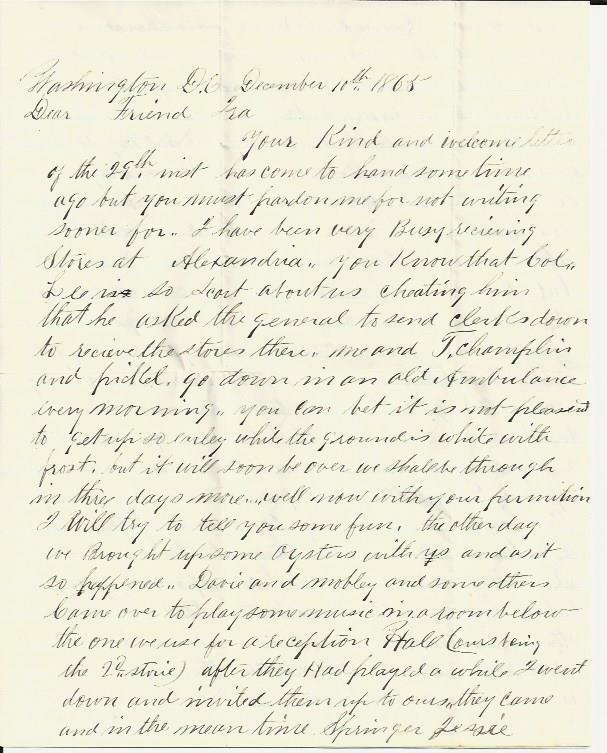 Washington D.C December 10th. 1865
Dear Friend Ira
Your Kind and welcome letter
of the 29th. inst has come to hand some time
ago but you must pardon me for not writing
sooner for.. I have been very Busy recieving
Stores at Alexandria.. you Know that Col..
Lee is so scart about us cheating him
that he asked the general to send clerks down
to recieve the stores there. me and T. Champlin
and pickel. go down in an old Ambulance
every morning.. you can bet it is not pleasent
to get up so erley while the ground is white with
frost. but it will soon be over we shal be through
in three days more... well now with your purmition
I Will try to tell you some fun. the other day
we Brought up some Oysters with us and as it
so happened.. Davie and mobley and some others
Came over to play some music in a room below
the one we use for a reception Hall (ours being
the 2d. storie) after they Had played a while I went
down and invited them up to ours.. they came
and in the mean time Springer Jessie